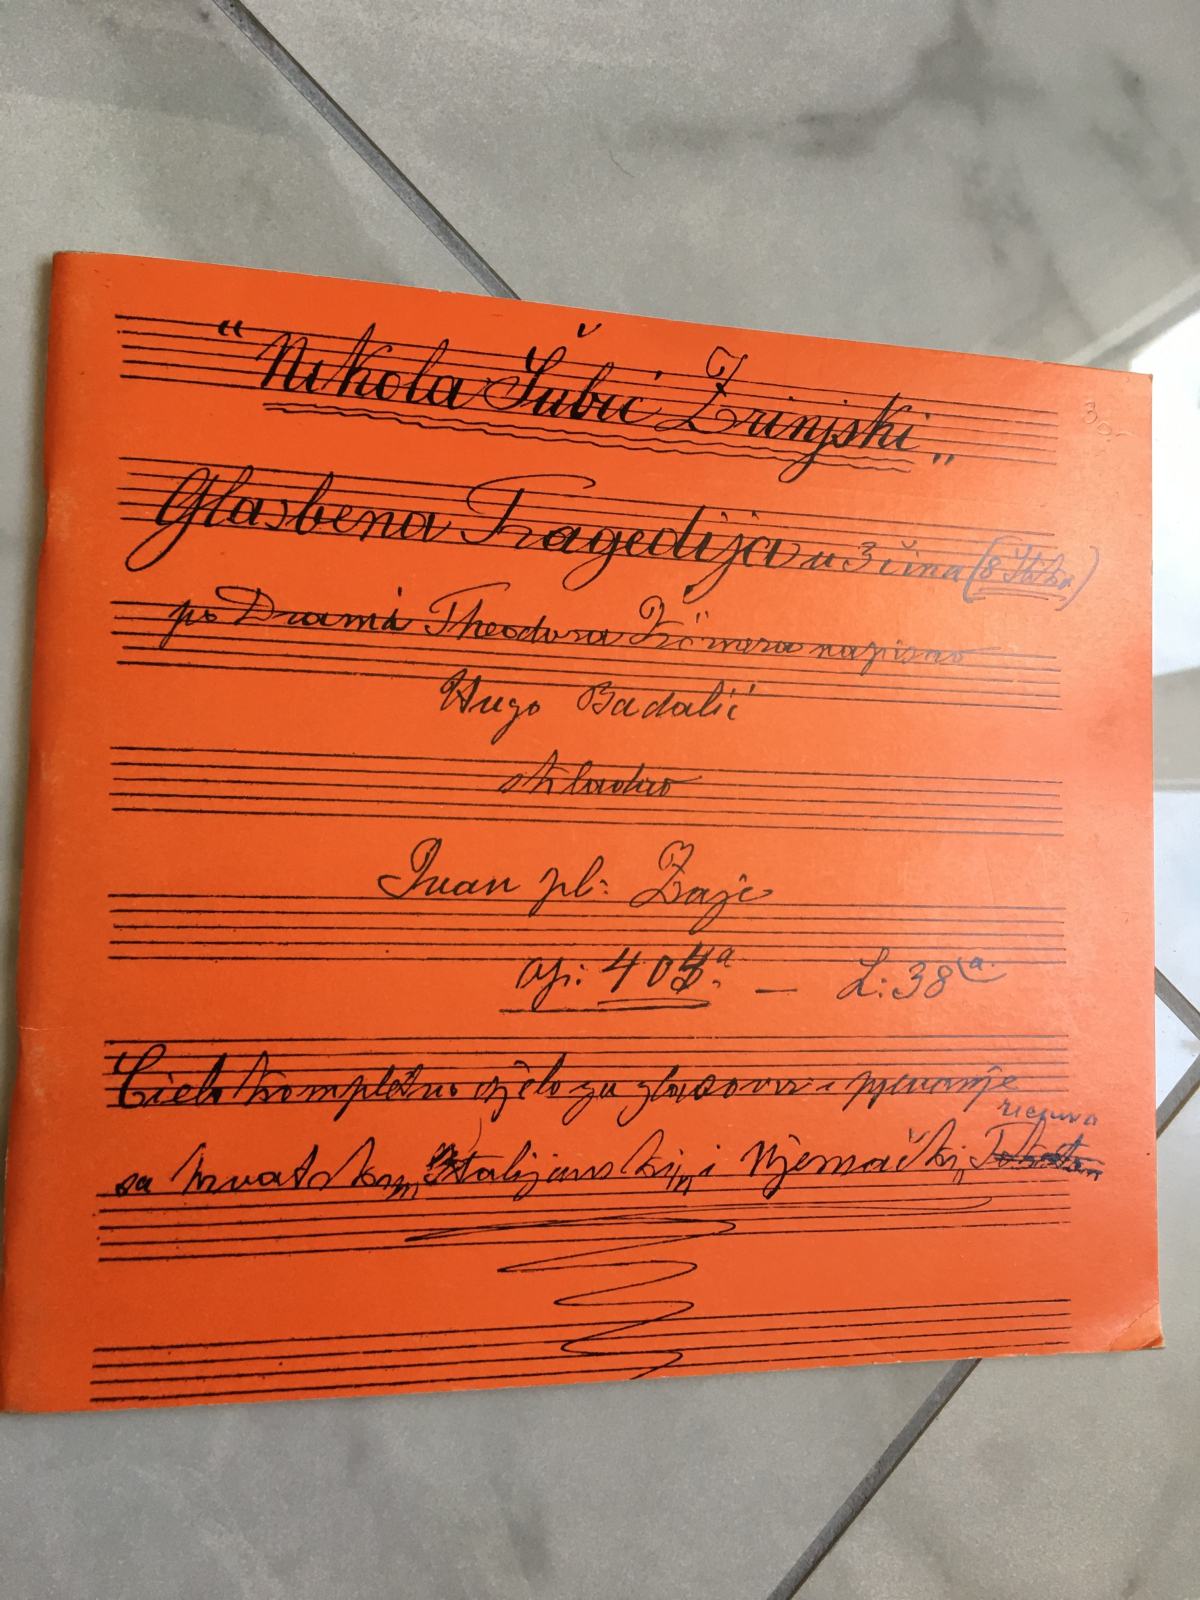 "Nikola Šubić Zrinjski"
Glasbena Tragedija u 3 čina (8 slika)
po Drami Theodora Körnera napisao
Hugo Badalić
skladao
Ivan pl: Zajc
op: 403a. — L: 38a.
Cielo kompletno djelo za glasovir i pjevanje
riečima
sa hrvatskim, Italijanskim, i Njemačkim